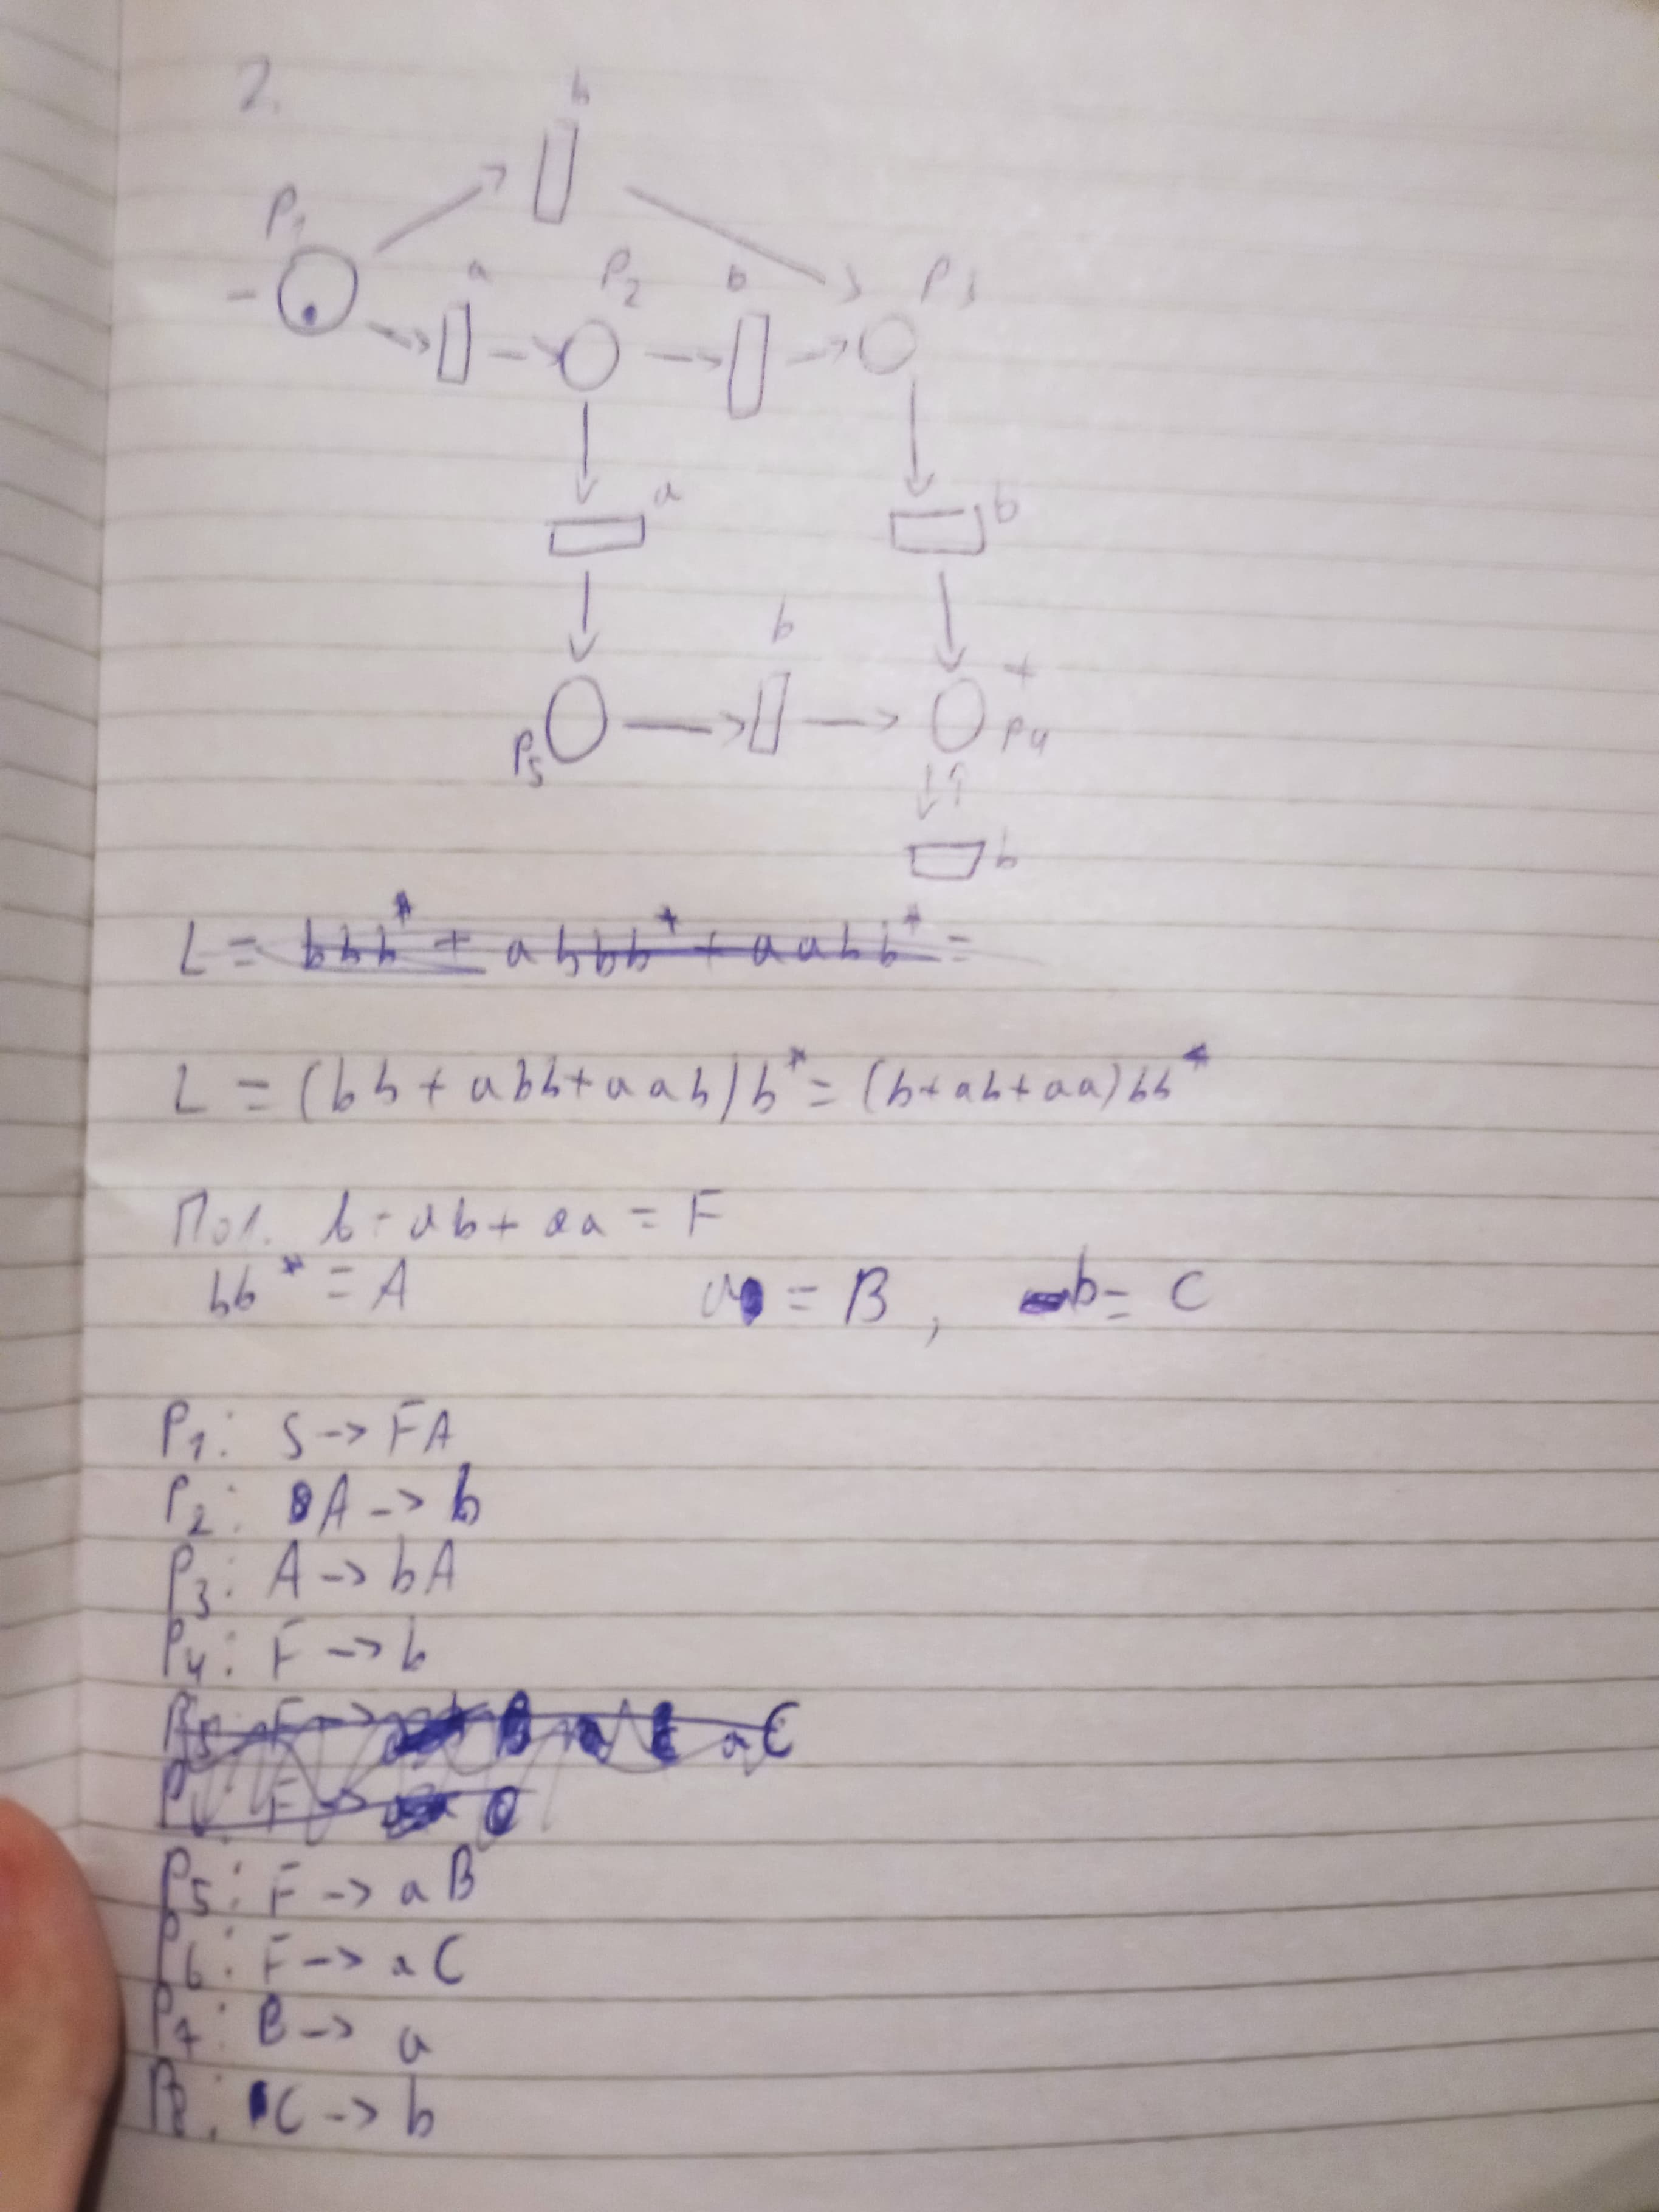 2.
b
P₁
a P₂ b P₃
-
a b
b
+
P₅ P₄
b
L = bbb* + abbb* + aabb* =
L = (bb + abb + aab)b* = (b + ab + aa)bb*
Пол. b + ab + aa = F
bb* = A a = B , b = C
P₁: S -> FA
P₂: A -> b
P₃: A -> bA
P₄: F -> b
P₅: F -> aC
F ->
P₅: F -> aB
P₆: F -> aC
P₇: B -> a
P₈: C -> b